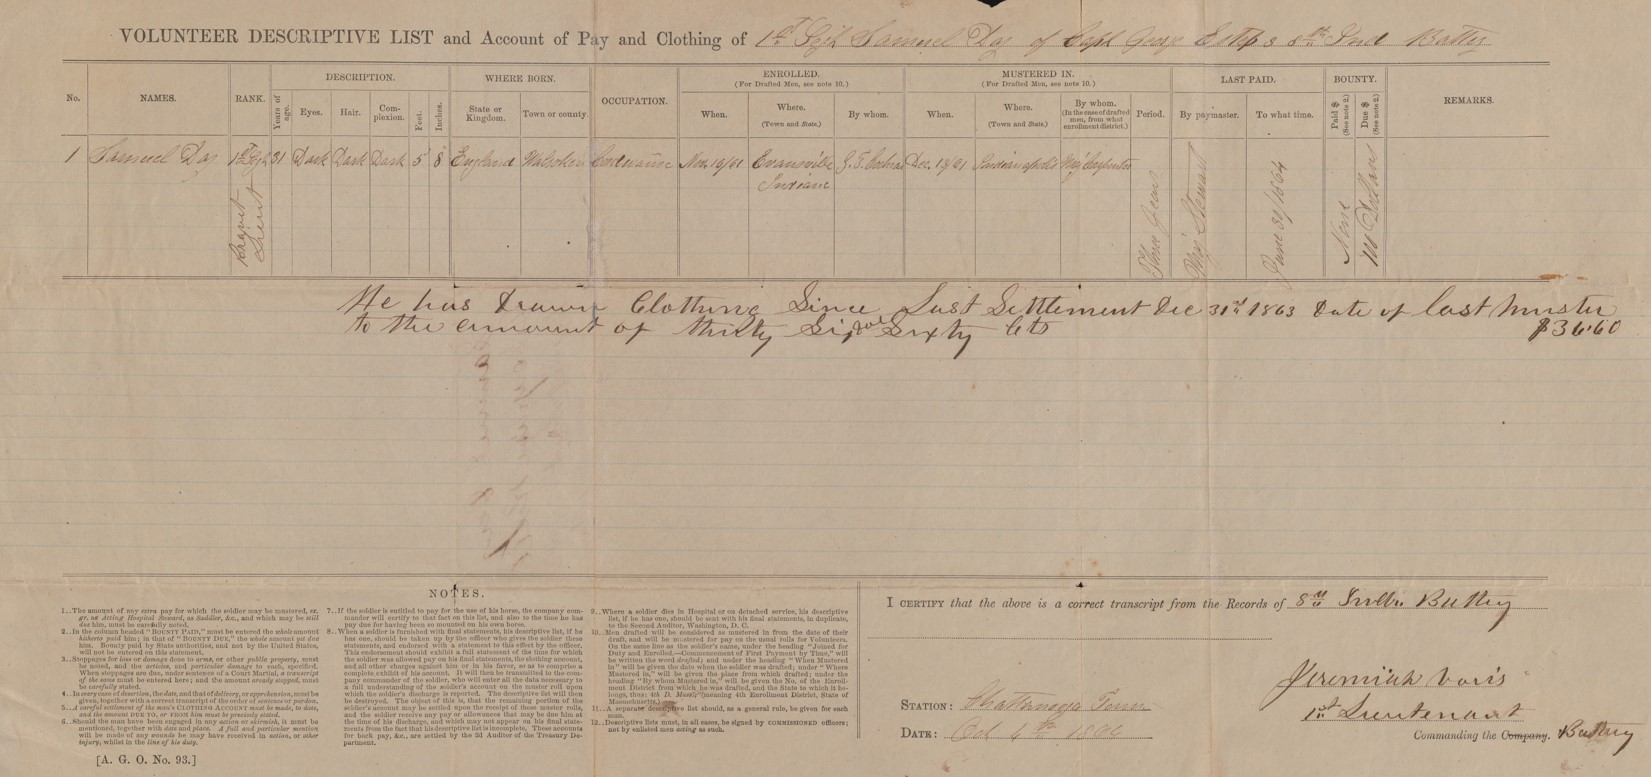 VOLUNTEER DESCRIPTIVE LIST and Account of Pay and Clothing of 1st Sgt Samuel Day of Capt George Esteps 8th Ind Battery
No. NAMES. RANK. DESCRIPTION. WHERE BORN. OCCUPATION. ENROLLED. MUSTERED IN. LAST PAID. BOUNTY. REMARKS.
(For Drafted Men, see note 10.) (For Drafted Men, see note 10.)
Years of age. Eyes. Hair. Complexion. Feet. Inches. State or Kingdom. Town or county. When. Where. (Town and State.) By whom. When. Where. (Town and State.) By whom. (In the case of drafted men, from what enrollment district.) Period. By paymaster. To what time. Paid $ (See note 2.) Due $ (See note 2.)
1 Samuel Day 1st Sgt 31 Dark Dark Dark 5 8 England Nov. 19/61 Evansville Dec. 13/61 Indianapolis Maj Carpenter
Indiana
Brevet Lieut Three Years Maj Stewart June 30/1864 None 100 Dollars
He has Drawn Clothing Since Last Settlement Dec 31st 1863 Date of last muster
to the amount of thirty Six dol Sixty Cts $36.60
NOTES.
1..The amount of any extra pay for which the soldier may be mustered, ex.
gr. as Acting Hospital Steward, as Saddler, &c., and which may be still
due him, must be carefully noted.
2..In the column headed "BOUNTY PAID," must be entered the whole amount
hitherto paid him; in that of "BOUNTY DUE," the whole amount yet due
him. Bounty paid by State authorities, and not by the United States,
will not be entered on this statement.
3..Stoppages for loss or damage done to arms, or other public property, must
be noted, and the articles, and particular damage to each, specified.
When stoppages are due, under sentence of a Court Martial, a transcript
of the same must be entered here; and the amount already stopped, must
be carefully stated.
4..In every case of desertion, the date, and that of delivery, or apprehension, must be
given, together with a correct transcript of the order of sentence or pardon.
5..A careful settlement of the man's CLOTHING ACCOUNT must be made, to date,
and the amount DUE TO, or FROM him must be precisely stated.
6..Should the man have been engaged in any action or skirmish, it must be
mentioned, together with date and place. A full and particular mention
will be made of any wounds he may have received in action, or other
injury, whilst in the line of his duty.
[A. G. O. No. 93.]
7..If the soldier is entitled to pay for the use of his horse, the company commander
will certify to that fact on this list, and also to the time he has
pay due for having been so mounted on his own horse.
8..When a soldier is furnished with final statements, his descriptive list, if he
has one, should be taken up by the officer who gives the soldier these
statements, and endorsed with a statement to this effect by the officer.
This endorsement should exhibit a full statement of the time for which
the soldier was allowed pay on his final statements, the clothing account,
and all other charges against him or in his favor, so as to comprise a
complete exhibit of his account. It will then be transmitted to the company
commander of the soldier, who will enter all the data necessary to
a full understanding of the soldier's account on the muster roll upon
which the soldier's discharge is reported. The descriptive list will then
be destroyed. The object of this is, that the remaining portion of the
soldier's account may be settled upon the receipt of those muster rolls,
and the soldier receive any pay or allowances that may be due him at
the time of his discharge, and which may not appear on his final statements
from the fact that his descriptive list is incomplete. These accounts
for back pay, &c., are settled by the 2d Auditor of the Treasury Department.
9..Where a soldier dies in Hospital or on detached service, his descriptive
list, if he has one, should be sent with his final statements, in duplicate,
to the Second Auditor, Washington, D. C.
10..Men drafted will be considered as mustered in from the date of their
draft, and will be mustered for pay on the usual rolls for Volunteers.
On the same line as the soldier's name, under the heading "Joined for
Duty and Enrolled.—Commencement of First Payment by Time," will
be written the word drafted; and under the heading "When Mustered
in" will be given the date when the soldier was drafted; under "Where
Mustered in," will be given the place from which drafted; under the
heading "By whom Mustered in," will be given the No. of the Enrollment
District from which he was drafted, and the State to which it belongs,
thus: 4th D. Mass., (meaning 4th Enrollment District, State of
Massachusetts.)
11..A separate descriptive list should, as a general rule, be given for each
man.
12..Descriptive lists must, in all cases, be signed by COMMISSIONED officers;
not by enlisted men acting as such.
I CERTIFY that the above is a correct transcript from the Records of 8th Indiana Battery
Jeremiah Voris
1st Lieutenant
STATION: Chattanooga Tenn
DATE: Oct 1864
Commanding the Company. Battery